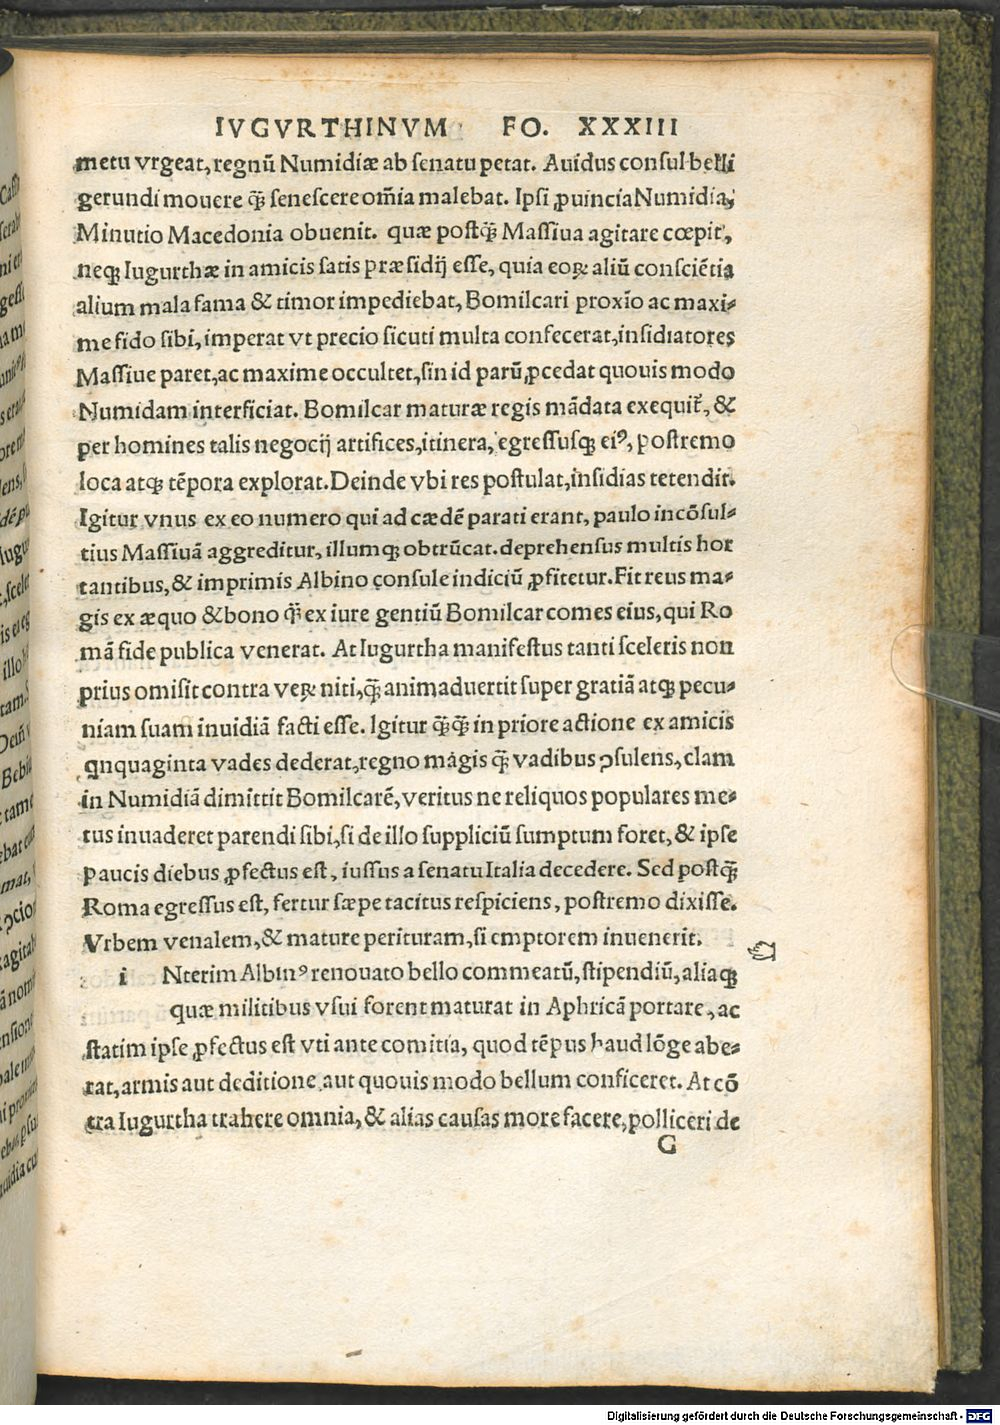 IVGVRTHINVM FO. XXXIII
metu vrgeat, regnū Numidiæ ab ſenatu petat. Auidus conſul belli
gerundi mouere q̄ꝫ ſeneſcere om̄ia malebat. Ipſi ꝓuincia Numidia,
Minutio Macedonia obuenit. quæ poſtq̄ꝫ Maſſiua agitare cœpit,
neqꝫ Iugurthæ in amicis ſatis præſidij eſſe, quia eoꝝ aliū conſciētia
alium mala fama & timor impediebat, Bomilcari proxīo ac maxi-
me fido ſibi, imperat vt precio ſicuti multa confecerat, inſidiatores
Maſſiue paret, ac maxime occultet, ſin id parū ꝓcedat quouis modo
Numidam interficiat. Bomilcar maturæ regis mādata exequit᷑, &
per homines talis negocij artifices, itinera, egreſſuſqꝫ eiꝰ, poſtremo
loca atqꝫ tēpora explorat. Deinde vbi res poſtulat, inſidias tetendit.
Igitur vnus ex eo numero qui ad cædē parati erant, paulo incōſul-
tius Maſſiuā aggreditur, illumqꝫ obtrūcat. deprehenſus multis hor
tantibus, & imprimis Albino conſule indiciū ꝓfitetur. Fit reus ma-
gis ex æquo & bono q̄ꝫ ex iure gentiū Bomilcar comes eius, qui Ro
mā fide publica venerat. At Iugurtha manifeſtus tanti ſceleris non
prius omiſit contra veꝝ niti, q̄ꝫ animaduertit ſuper gratiā atqꝫ pecu-
niam ſuam inuidiā facti eſſe. Igitur q̄ꝫq̄ꝫ in priore actione ex amicis
qnquaginta vades dederat, regno magis q̄ꝫ vadibus ↄſulens, clam
in Numidiā dimittit Bomilcarē, veritus ne reliquos populares me-
tus inuaderet parendi ſibi, ſi de illo ſuppliciū ſumptum foret, & ipſe
paucis diebus ꝓfectus eſt, iuſſus a ſenatu Italia decedere. Sed poſtq̄ꝫ
Roma egreſſus eſt, fertur ſæpe tacitus reſpiciens, poſtremo dixiſſe.
Vrbem venalem, & mature perituram, ſi emptorem inuenerit.
i Nterim Albinꝰ renouato bello commeatū, ſtipendiū, aliaqꝫ
quæ militibus vſui forent maturat in Aphricā portare, ac
ſtatim ipſe ꝓfectus eſt vti ante comitia, quod tēpus haud lōge abe-
rat, armis aut deditione aut quouis modo bellum conficeret. At cō
tra Iugurtha trahere omnia, & alias cauſas more facere, polliceri de
G
Digitalisierung gefördert durch die Deutsche Forschungsgemeinschaft - DFG